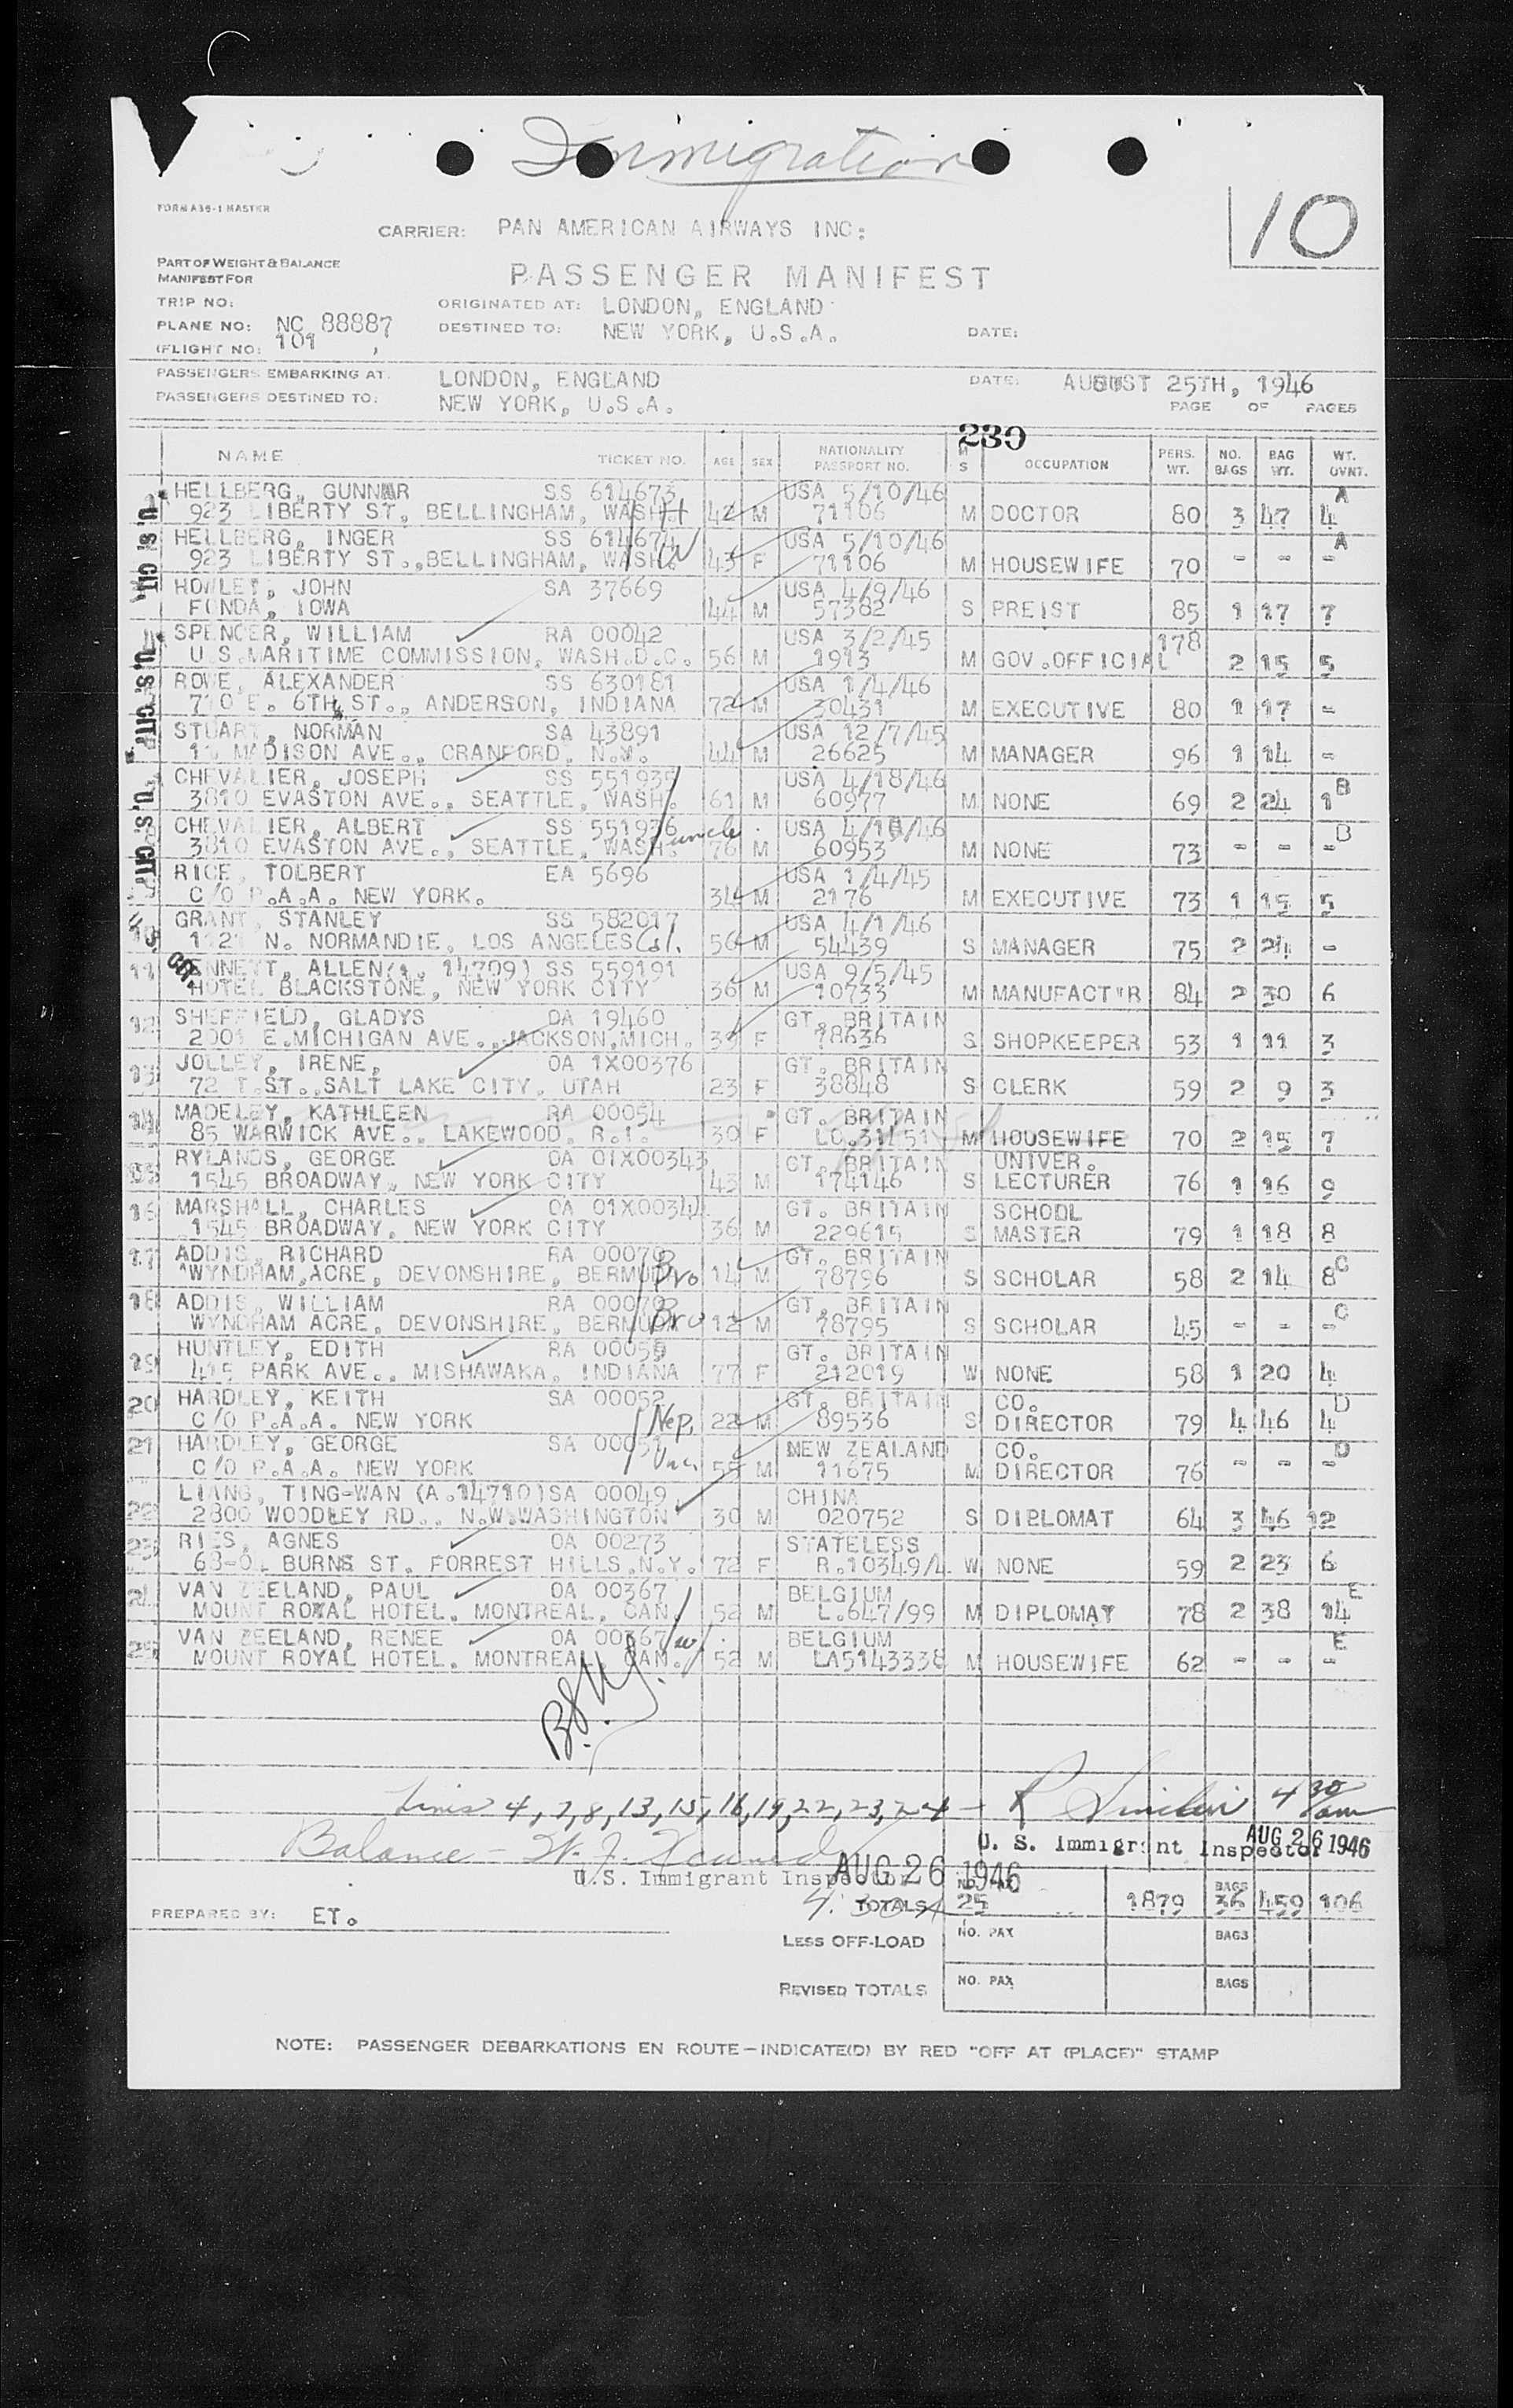 Immigration
FORM A36-1 MASTER
10
CARRIER: PAN AMERICAN AIRWAYS INC:
PART OF WEIGHT & BALANCE
MANIFEST FOR
PASSENGER MANIFEST
TRIP NO:
ORIGINATED AT: LONDON, ENGLAND
PLANE NO: NC 88887
DESTINED TO: NEW YORK, U.S.A. DATE:
(FLIGHT NO: 101 )
PASSENGERS EMBARKING AT: LONDON, ENGLAND DATE: AUGUST 25TH, 1946
PASSENGERS DESTINED TO: NEW YORK, U.S.A. PAGE OF PAGES
230
NAME TICKET NO. AGE SEX NATIONALITY PASSPORT NO. M S OCCUPATION PERS. WT. NO. BAGS BAG WT. WT. OVNT.
HELLBERG, GUNNAR SS 614673 USA 5/10/46 A
923 LIBERTY ST, BELLINGHAM, WASH. H 42 M 71106 M DOCTOR 80 3 47 4
HELLBERG, INGER SS 614674 USA 5/10/46 A
923 LIBERTY ST.,BELLINGHAM, WASH. W 43 F 71106 M HOUSEWIFE 70 - - -
HOWLEY, JOHN SA 37669 USA 4/9/46
FONDA, IOWA 44 M 57382 S PREIST 85 1 17 7
SPENCER, WILLIAM RA 00042 USA 3/2/45 178
U.S.MARITIME COMMISSION, WASH.D.C. 56 M 1913 M GOV.OFFICIAL 2 15 5
ROWE, ALEXANDER SS 630181 USA 1/4/46
710 E. 6TH ST., ANDERSON, INDIANA 72 M 30431 M EXECUTIVE 80 1 17 -
STUART, NORMAN SA 43891 USA 12/7/45
MADISON AVE., CRANFORD, N.J. 44 M 26625 M MANAGER 96 1 14 -
CHEVALIER, JOSEPH SS 551935 USA 4/18/46 B
3810 EVASTON AVE., SEATTLE, WASH. 61 M 60977 M NONE 69 2 24 1
CHEVALIER, ALBERT SS 551936 uncle USA 4/18/46 B
3810 EVASTON AVE., SEATTLE, WASH. 76 M 60953 M NONE 73 - - -
RICE, TOLBERT EA 5696 USA 1/4/45
C/O P.A.A. NEW YORK. 34 M 2176 M EXECUTIVE 73 1 15 5
GRANT, STANLEY SS 582017 USA 4/1/46
N. NORMANDIE, LOS ANGELES Cal. 56 M 54439 S MANAGER 75 2 24 -
11 BENNETT, ALLEN(A. 14709) SS 559191 USA 9/5/45
HOTEL BLACKSTONE, NEW YORK CITY 36 M 10733 M MANUFACT"R 84 2 30 6
12 SHEFFIELD, GLADYS OA 19460 GT. BRITAIN
2001 E.MICHIGAN AVE.,JACKSON,MICH. 39 F 78636 S SHOPKEEPER 53 1 11 3
13 JOLLEY, IRENE, OA 1X00376 GT. BRITAIN
72 T.ST.,SALT LAKE CITY, UTAH 23 F 38848 S CLERK 59 2 9 3
14 MADELEY, KATHLEEN RA 00054 GT. BRITAIN
85 WARWICK AVE., LAKEWOOD, R.I. 30 F LC.31151 M HOUSEWIFE 70 2 15 7
15 RYLANDS, GEORGE OA 01X00343 GT. BRITAIN UNIVER.
1545 BROADWAY, NEW YORK CITY 43 M 174146 S LECTURER 76 1 16 9
16 MARSHALL, CHARLES OA 01X00344 GT. BRITAIN SCHOOL
1545 BROADWAY, NEW YORK CITY 36 M 229615 S MASTER 79 1 18 8
17 ADDIS, RICHARD RA 00070 GT. BRITAIN C
WYNDHAM ACRE, DEVONSHIRE, BERMUDA Bro 14 M 78796 S SCHOLAR 58 2 14 8
18 ADDIS, WILLIAM RA 00070 GT. BRITAIN C
WYNDHAM ACRE, DEVONSHIRE, BERMUDA Bro 12 M 78795 S SCHOLAR 45 - - -
19 HUNTLEY, EDITH RA 00059 GT. BRITAIN
415 PARK AVE., MISHAWAKA, INDIANA 77 F 212019 W NONE 58 1 20 4
20 HARDLEY, KEITH SA 00052 GT. BRITAIN CO. D
C/O P.A.A. NEW YORK Nep. 22 M 89536 S DIRECTOR 79 4 46 4
21 HARDLEY, GEORGE SA 00051 NEW ZEALAND CO. D
C/O P.A.A. NEW YORK Unc. 55 M 11675 M DIRECTOR 76 - - -
22 LIANG, TING-WAN (A.14710)SA 00049 CHINA
2800 WOODLEY RD., N.W.WASHINGTON 30 M 020752 S DIPLOMAT 64 3 46 12
23 RIES, AGNES OA 00273 STATELESS
BURNS ST. FORREST HILLS.N.Y. 72 F R.10349/4 W NONE 59 2 23 6
24 VAN ZEELAND, PAUL OA 00367 BELGIUM E
MOUNT ROYAL HOTEL, MONTREAL, CAN. 52 M L.647/99 M DIPLOMAT 78 2 38 14
25 VAN ZEELAND, RENEE OA 00367 w BELGIUM E
MOUNT ROYAL HOTEL, MONTREAL, CAN. 52 M LA5143338 M HOUSEWIFE 62 - - -
Lines 4, 7, 8, 13, 15, 16, 19, 22, 23, 24 - R Sinclair 4 30 am
U. S. Immigrant Inspector AUG 26 1946
Balance - W. J. Kennedy
U.S. Immigrant Inspector AUG 26 1946
4:30 A
TOTALS NO. PAX 25 1879 BAGS 36 459 106
PREPARED BY: ET.
LESS OFF-LOAD NO. PAX BAGS
REVISED TOTALS NO. PAX BAGS
NOTE: PASSENGER DEBARKATIONS EN ROUTE—INDICATE(D) BY RED "OFF AT (PLACE)" STAMP
U.S. CIT
U.S. CIT
U.S. CIT